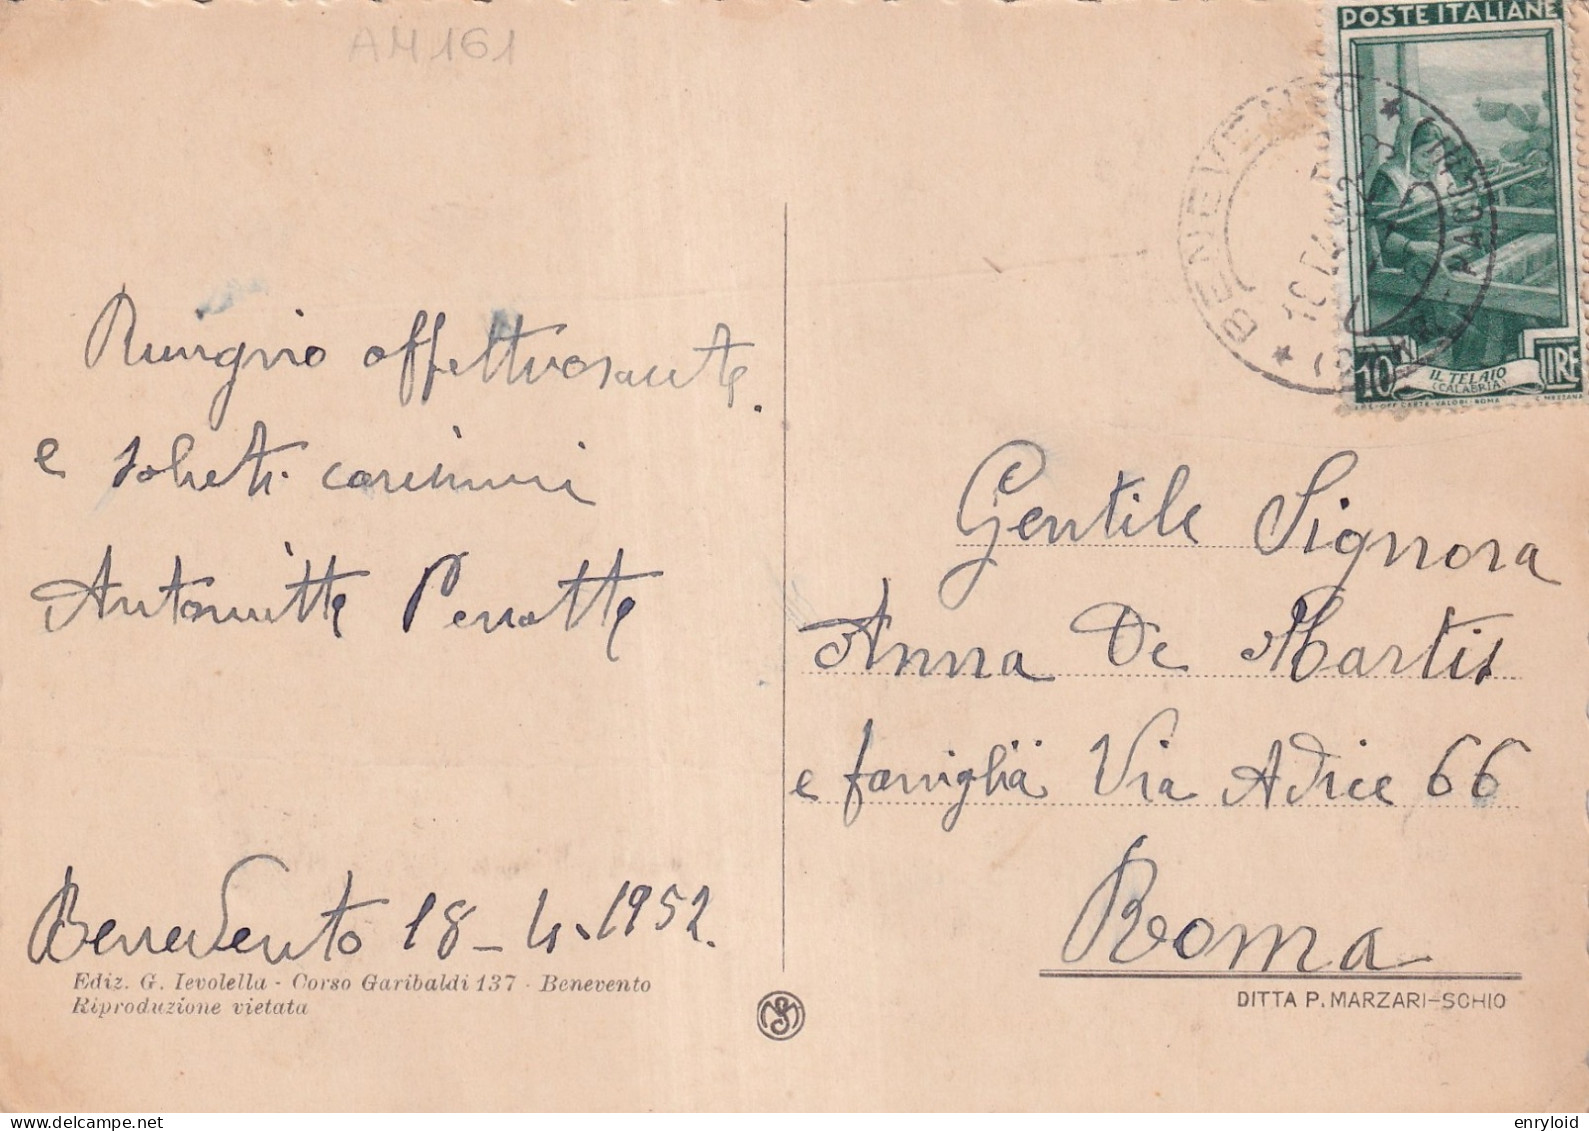 AM161
POSTE ITALIANE
BENEVENTO
10 LIRE
IL TELAIO
(CALABRIA)
I.P.S.-OFF. CARTE-VALORI-ROMA C. MEZZANA
affettuosamte
e saluti carissimi
Antonietta Perrotta
Benevento 18-4-1952.
Ediz. G. Ievolella - Corso Garibaldi 137 - Benevento
Riproduzione vietata
Gentile Signora
Anna De Martis
e famiglia Via Adice 66
Roma
DITTA P. MARZARI-SCHIO
enryloid
delcampe.net